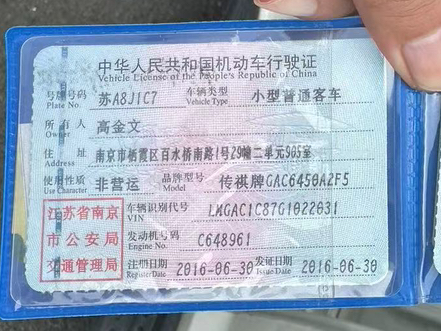 中华人民共和国机动车行驶证
Vehicle License of the People's Republic of China
号牌号码 苏A8J1C7 车辆类型 小型普通客车
Plate No. Vehicle Type
所有人 高金文
Owner
住址 南京市栖霞区百水桥南路1号29幢二单元905室
Address
使用性质 非营运 品牌型号 传祺牌GAC6450A2F5
Use Character Model
江苏省南京市公安局交通管理局
车辆识别代号 LMGAC1C87G1022031
VIN
发动机号码 C648961
Engine No.
注册日期 2016-06-30 发证日期 2016-06-30
Register Date Issue Date